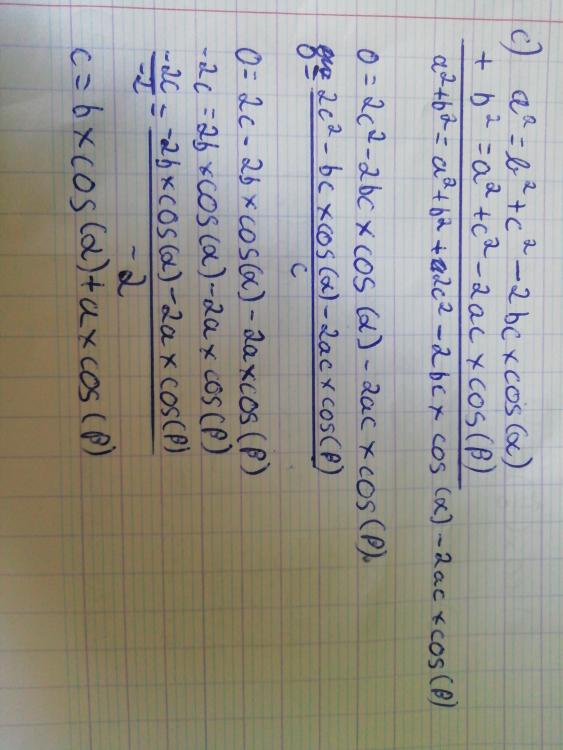 c) a² = b² + c² - 2bc × cos(α)
+ b² = a² + c² - 2ac × cos(β)
a² + b² = a² + b² + 2c² - 2bc × cos(α) - 2ac × cos(β)
0 = 2c² - 2bc × cos(α) - 2ac × cos(β)
0 = 2c² - bc × cos(α) - 2ac × cos(β)
c
0 = 2c - 2b × cos(α) - 2a × cos(β)
-2c = 2b × cos(α) - 2a × cos(β)
-2c = -2b × cos(α) - 2a × cos(β)
-2 -2
c = b × cos(α) + a × cos(β)